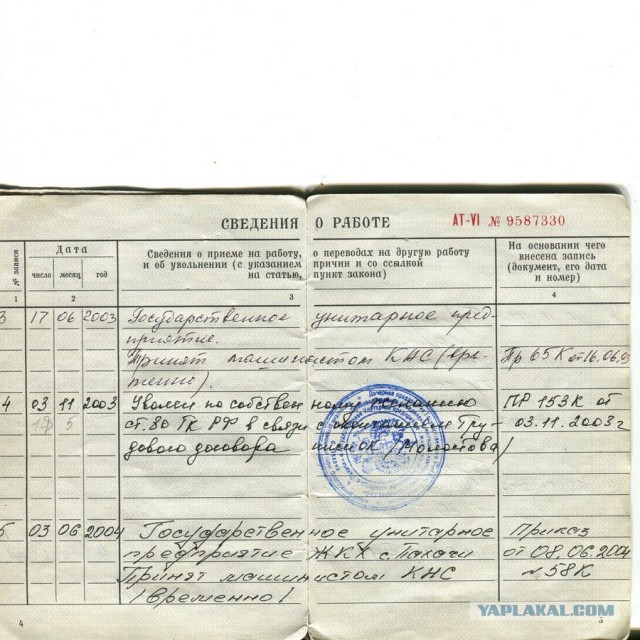 СВЕДЕНИЯ О РАБОТЕ АТ-VI № 9587330
№ записи
Дата
число месяц год
Сведения о приеме на работу, о переводах на другую работу
и об увольнении (с указанием причин и со ссылкой
на статью, пункт закона)
На основании чего
внесена запись
(документ, его дата
и номер)
1 2 3 4
3 17 06 2003 Государственное унитарное пред-
приятие.
Принят машинистом КНС (вре- Пр 65 К от 16.06.03
менно).
4 03 11 2003 Уволен по собственному желанию ПР 153К от
ст. 80 ТК РФ в связи с окончанием Тру- 03.11.2003г
дового договора
5 03 06 2004 Государственное унитарное Приказ
предприятие ЖКХ с. Пахачи от 08.06.2004
Принят машинистом КНС №58К
(временно)
4 5
YAPLAKAL.COM